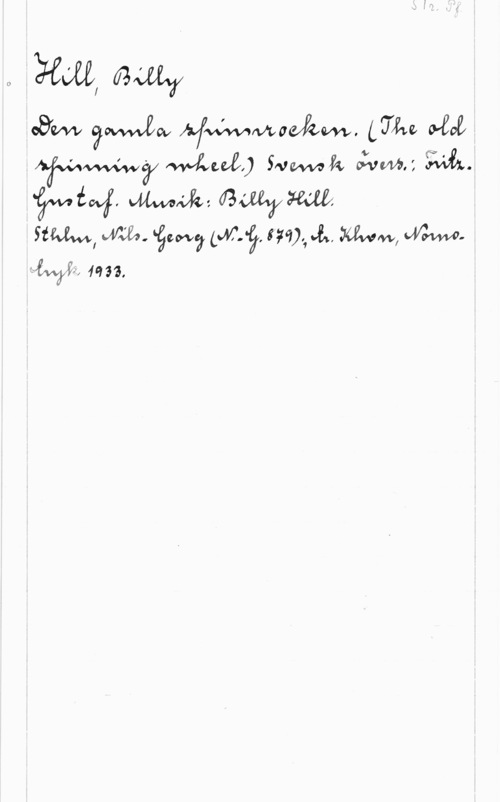 Hill, Billy
Den gamla spinnrocken. (The old
spinning wheel.) Svensk övers.: Fritz-
Gustaf. Musik: Billy Hill.
Sthlm, Nils-Georg (N.-G. 879); tr. Khvn, Nomo-
tryk 1933.